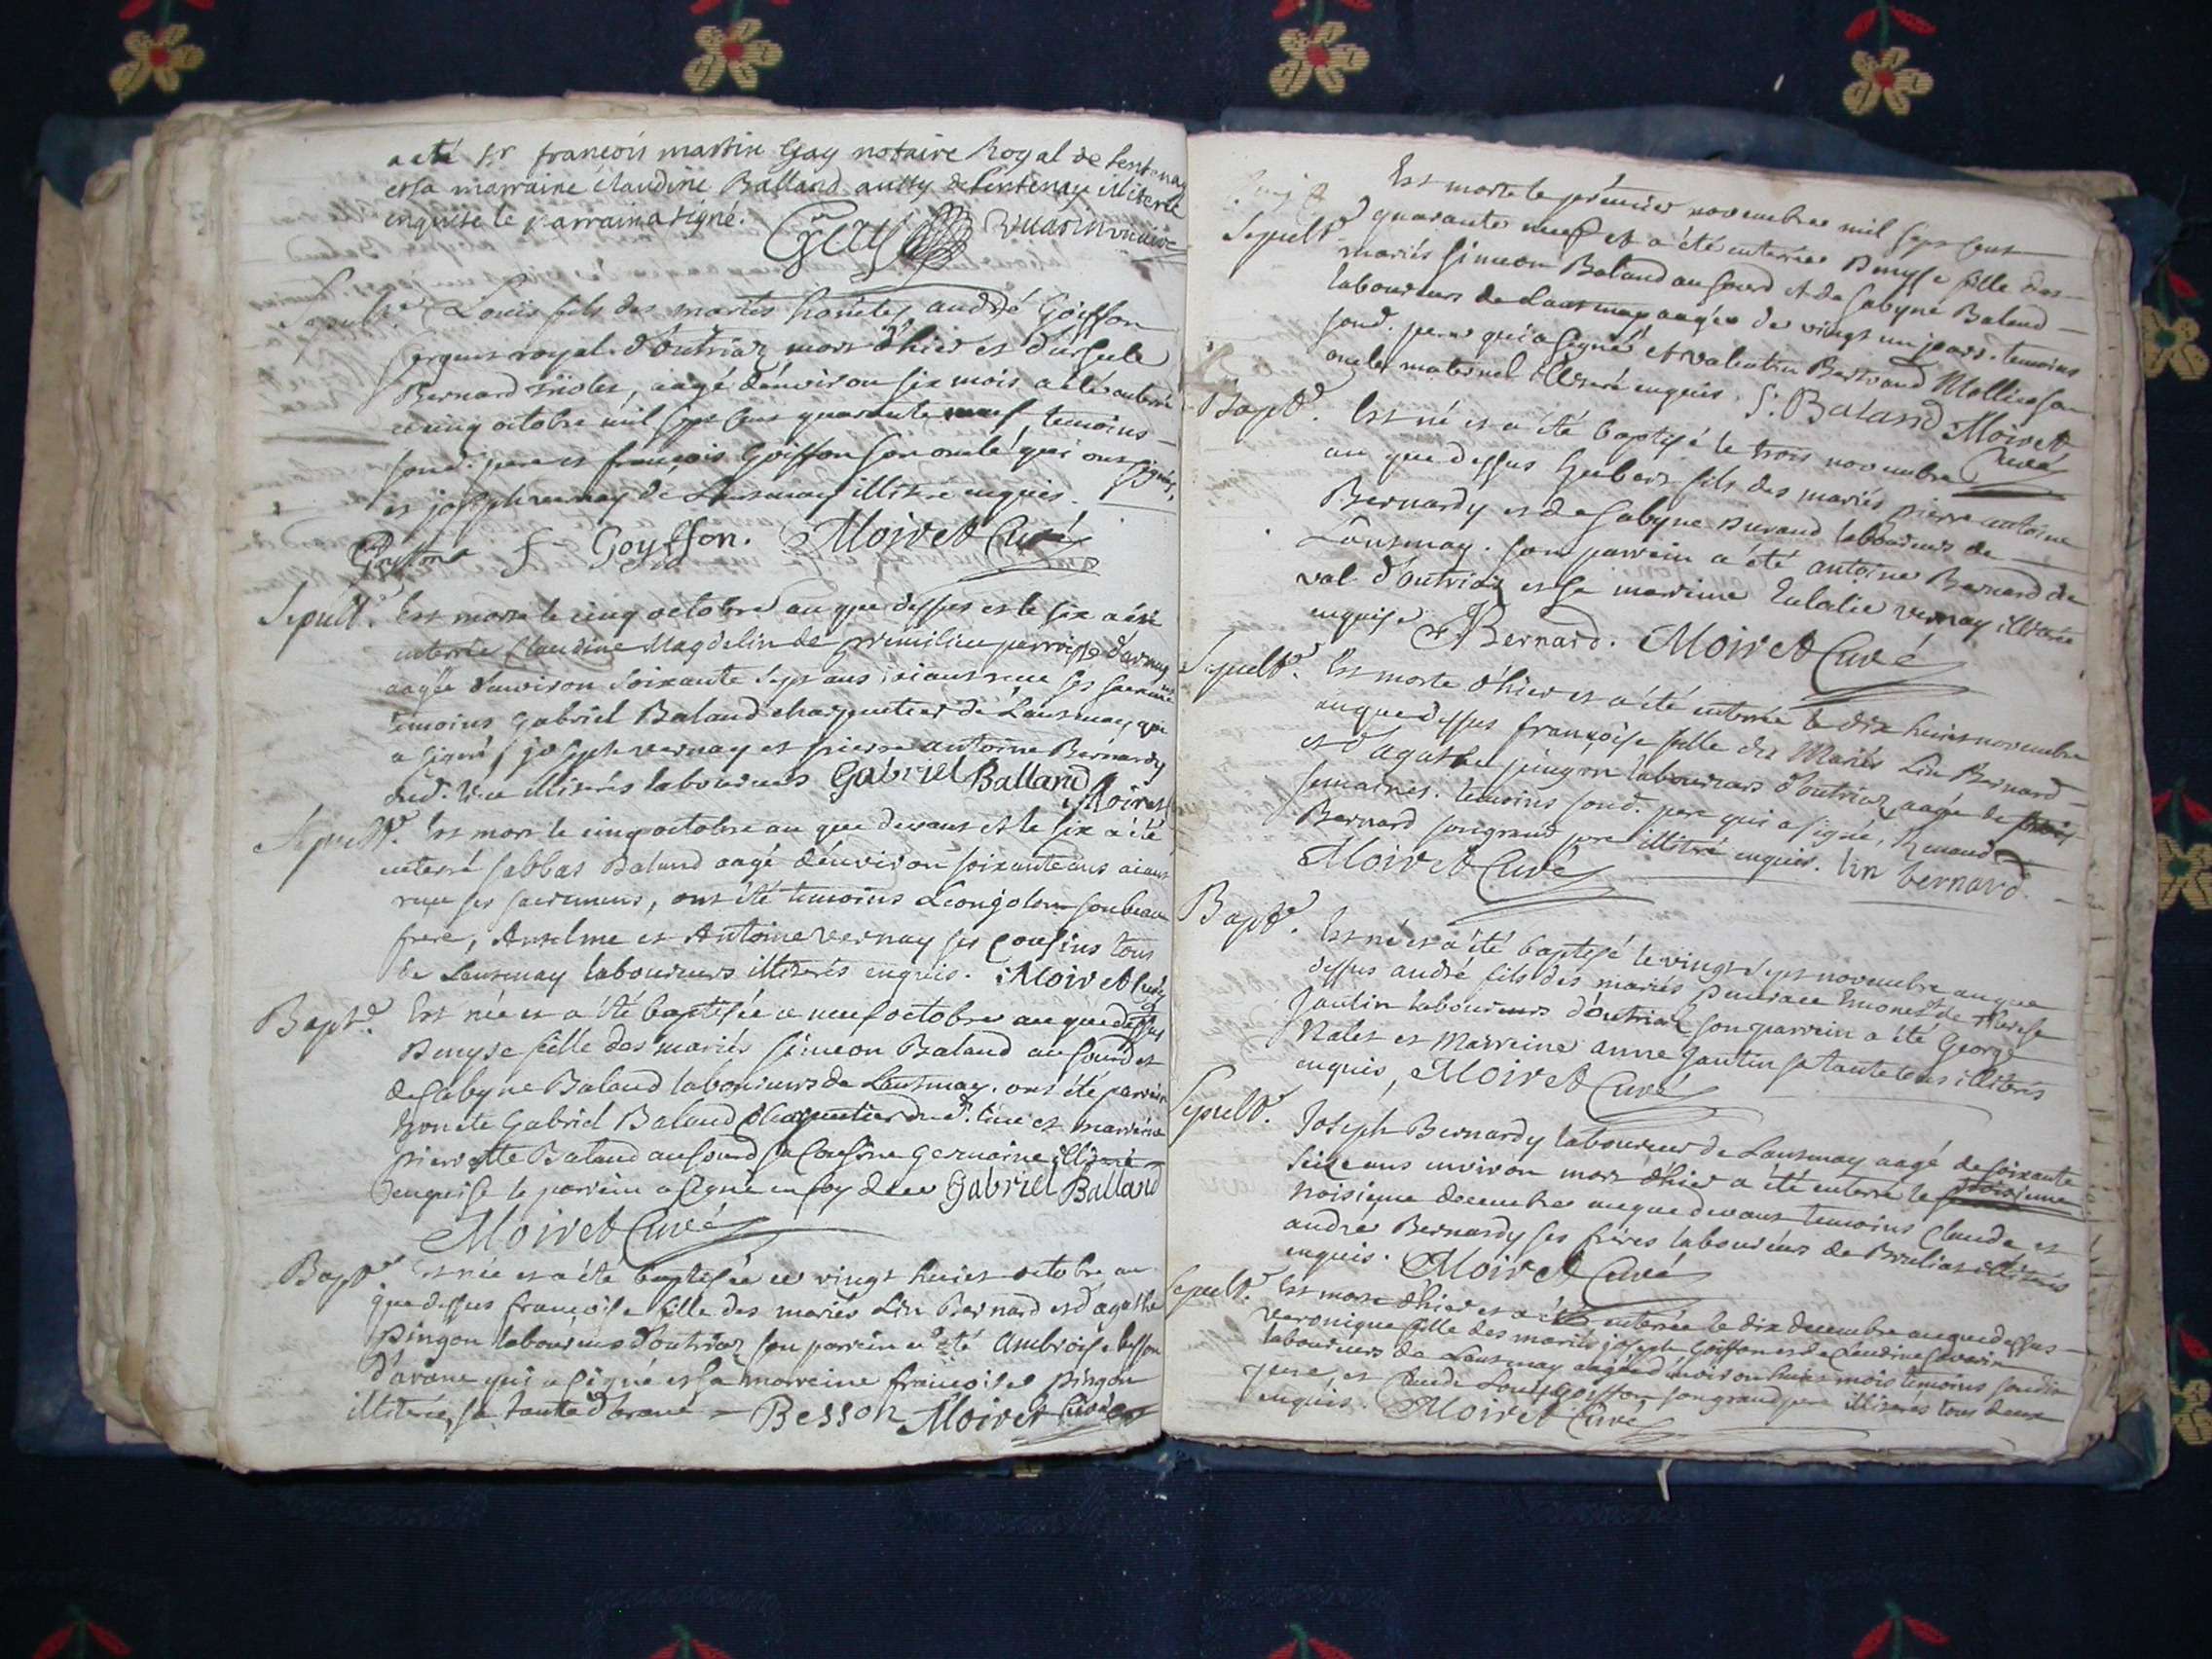 a eté Sr françois martin Gay notaire Royal de Lentenay
et sa marraine claudine Balland aussy de Lentenay illiterée
enquise le parrain a signé. Gay vuarin vicaire
Sepult.e Louis fils des mariés honnêtes andré Goiffon
sergent royal d'outriaz mort d'hier et d'ursule
Bernard triolet, aagé d'environ six mois a été enterré
ce cinq octobre mil sept cens quarante neuf, temoins
sond. pere et françois Goiffon son oncle qui ont signés,
et joseph vernay de Lantenay illitéré enquis.
Goiffon f Goyffon. Moiret Curé
Sepult.e Est morte le cinq octobre an que dessus et le six a été
enterrée Claudine Magdelin de parroisse
aagée d'environ soixante sept ans aiant recue ses sacremens
temoins Gabriel Baland charpentier de Lantenay qui
a signé, joseph vernay et pierre antoine Bernardy
dud. lieu illiterés laboureurs Gabriel Balland Moiret
Sepult.e Est mort le cinq octobre an que devant et le six a été
enterré sabbas Baland aagé d'environ soixante ans aiant
reçu ses sacremens, ont été temoins Leonjolon son beau
frere, Anselme et Antoine vernay ses cousins tous
de Lantenay laboureurs illiterés enquis. Moiret Curé
Bapt.e Est née et a été baptisée ce neuf octobre an que dessus
Denyse fille des mariés simeon Baland au sourd et
de sabyne Baland laboureurs de Lantenay. ont été parrain
honnête Gabriel Baland Charpentier du d. lieu et marreine
pierrette Baland au sourd sa cousine germaine illiterée
enquise le parrein a signé en foy de ce Gabriel Balland
Moiret Curé
Bapt.e Est née et a été baptisée ce vingt huict octobre an
que dessus françoise fille des mariés Lin Bernard et d'agathe
pingon laboureurs d'outriaz son parrein a été Ambroise besson
d'arane qui a signé et sa marreine françoise pingon
illiterée, sa tante d'arane Besson Moiret Curé
Est morte le prémier novembre mil sept cent
Sepult.e quarante neuf et a été enterrée Denyse fille des
mariés simeon Baland au sourd et de sabyne Baland
laboureurs de Lantenay aagée de vingt un jours. temoins
sond. pere qui a signé et valentin Bertrand Mollie son
oncle maternel illiteré enquis. S. Baland Moiret
Curé
Bapt.e Est né et a été baptisé le trois novembre
an que dessus hubert fils des mariés pierre antoine
Bernardy et de sabyne Durand laboureurs de
Lantenay. son parrein a été antoine Bernard du
val d'outriaz et sa marreine Eulalie vernay illiterée
enquise ABernard. Moiret Curé
Sepult.e Est morte d'hier et a été enterrée le dix huict novembre
an que dessus françoise fille des Mariés Lin Bernard
et d'agathe pingon laboureurs d'outriaz aagée de trois
semaines. temoins sond. pere qui a signé, Renaud
Bernard son grand pere illitéré enquis. lin bernard.
Moiret Curé
Bapt.e Est né et a été baptisé le vingt sept novembre an que
dessus andré fils des mariés Emonet de Therese
Jantin laboureurs d'outriaz son parrein a été George
Nalet et Marreine anne Jantin sa tante tous illiterés
enquis, Moiret Curé
Sepult.e Joseph Bernardy laboureur de Lantenay aagé de soixante
seize ans environ mort d'hier a été enterré le
troisieme decembre an que devant temoins Claude et
andré Bernardy ses frères laboureurs de illiterés
enquis. Moiret Curé
Sepult.e Est morte d'hier et a été enterrée le dix decembre an que dessus
veronique fille des mariés joseph Goiffon et de Claudine savarin
laboureurs de Lantenay aagée d'environ huict mois temoins sondit
pere, et Claude Louis Goiffon son grand pere illiterés tous deux
enquis. Moiret Curé